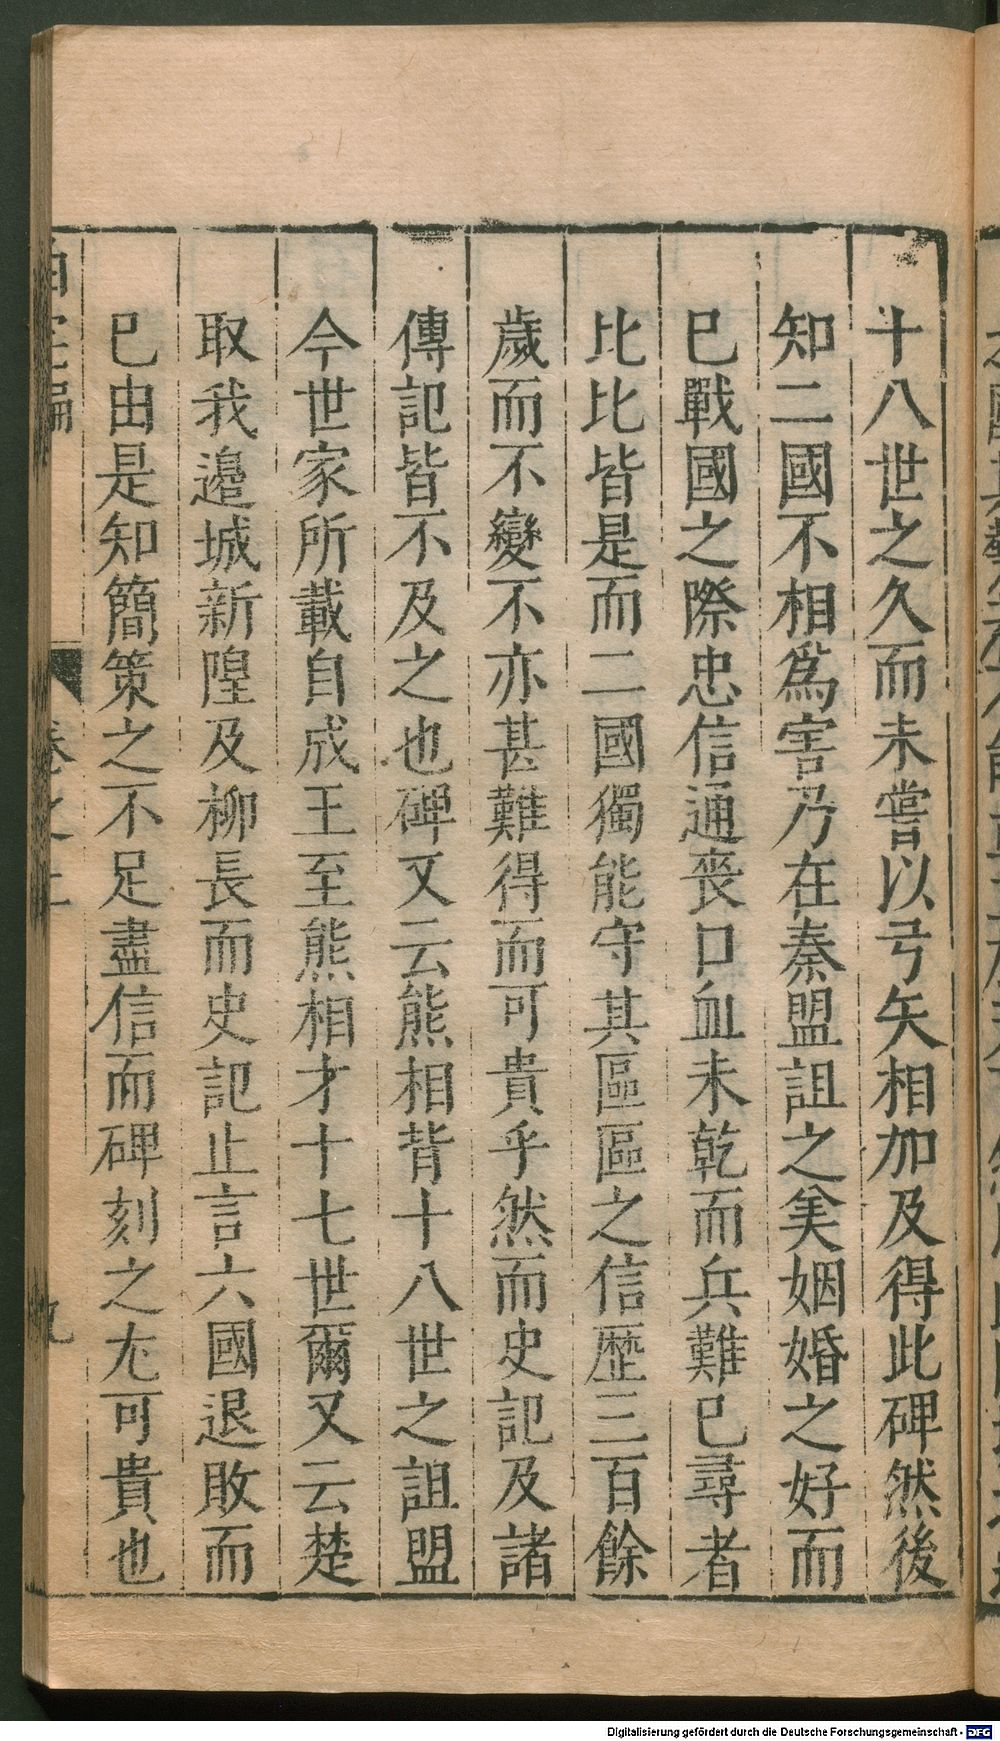 十八世之久而未嘗以弓矢相加及得此碑然後
知二國不相爲害乃在秦盟詛之美姻婚之好而
已戰國之際忠信通喪口血未乾而兵難已尋者
比比皆是而二國獨能守其區區之信歴三百餘
歲而不變不亦甚難得而可貴乎然而史記及諸
傳記皆不及之也碑又云熊相背十八世之詛盟
今世家所載自成王至熊相才十七世爾又云楚
取我邉城新隍及柳長而史記止言六國退敗而
已由是知簡策之不足盡信而碑刻之尢可貴也
泊宅編
卷之上
九
Digitalisierung gefördert durch die Deutsche Forschungsgemeinschaft - DFG